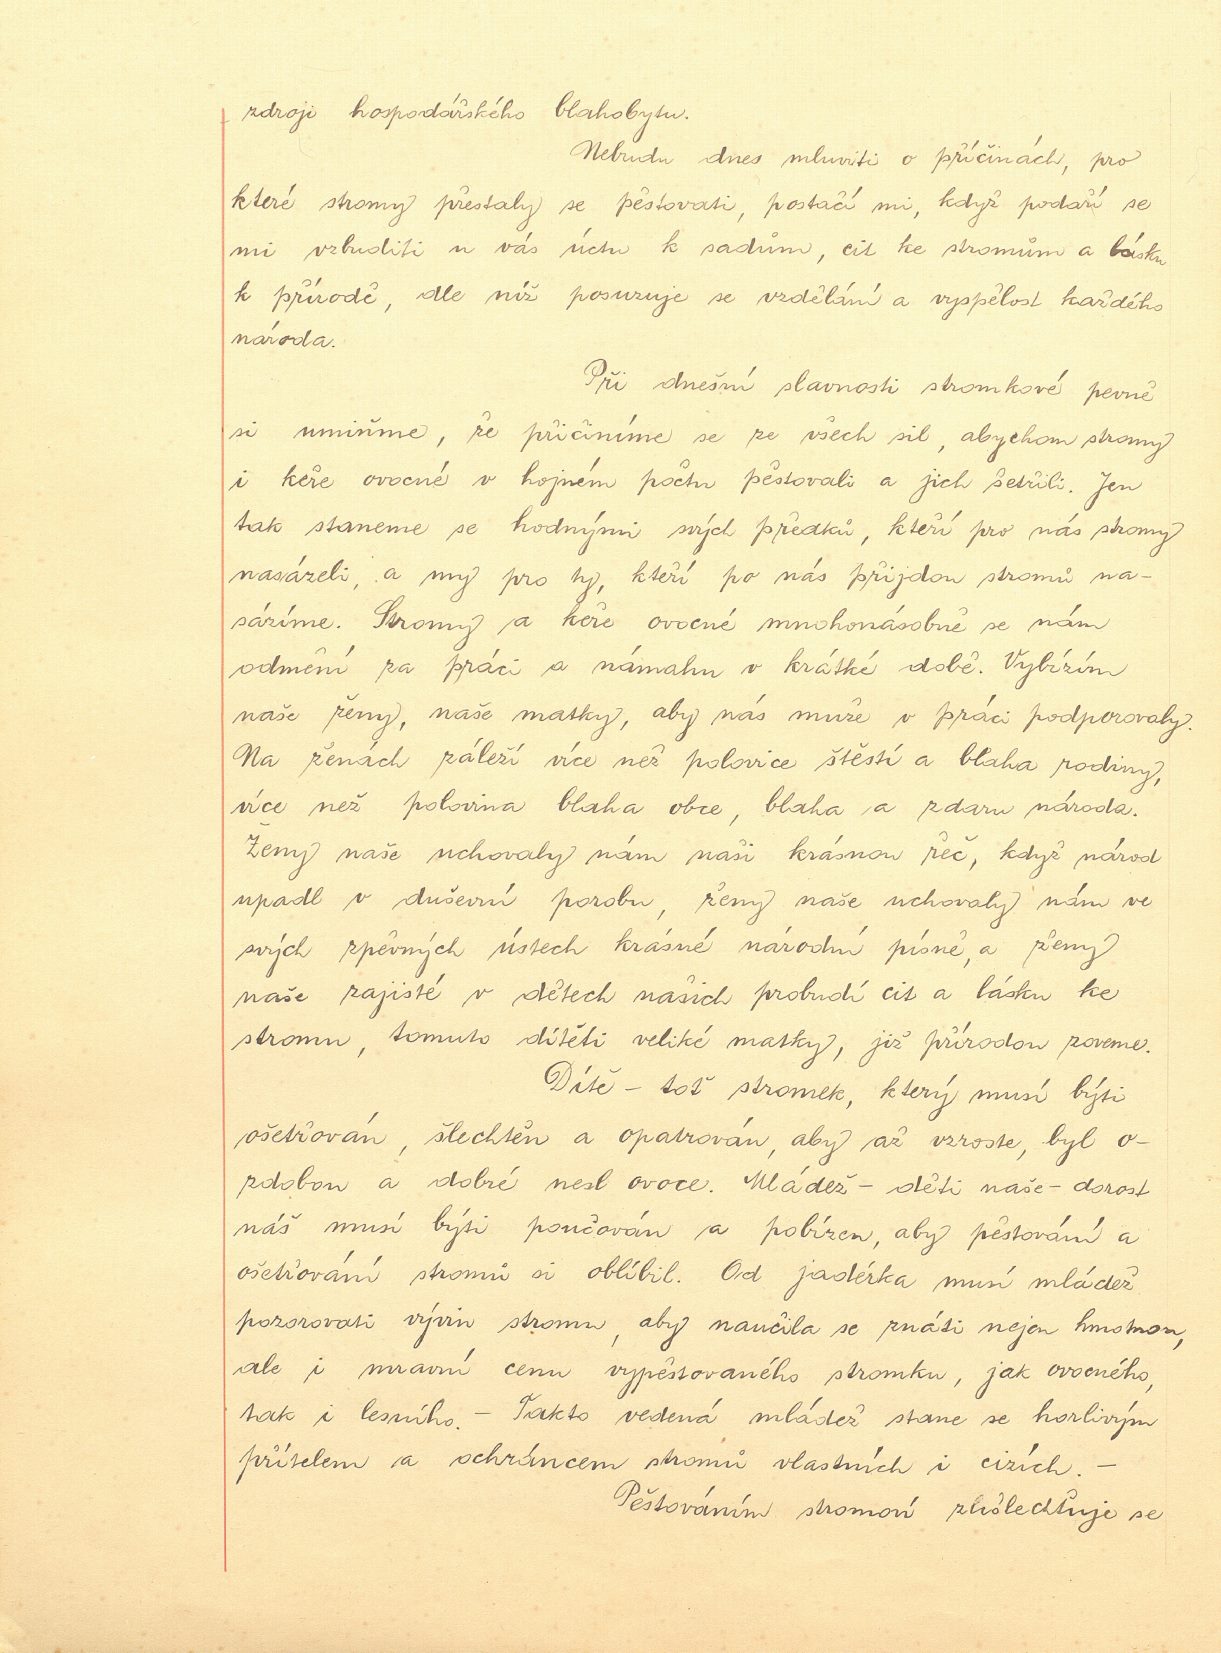 zdroji hospodářského blahobytu.
Nebudu dnes mluviti o příčinách, pro
které stromy přestaly se pěstovati, postačí mi, když podaří se
mi vzbuditi u vás úctu k sadům, cit ke stromům a lásku
k přírodě, dle níž posuzuje se vzdělání a vyspělost každého
národa.
Při dnešní slavnosti stromkové pevně
si umiňme, že přičiníme se ze všech sil, abychom stromy
i keře ovocné v hojném počtu pěstovali a jich šetřili. Jen
tak staneme se hodnými svých předků, kteří pro nás stromy
nasázeli, a my pro ty, kteří po nás přijdou stromů na-
sázíme. Stromy a keře ovocné mnohonásobně se nám
odmění za práci a námahu v krátké době. Vybízím
naše ženy, naše matky, aby nás muže v práci podporovaly.
Na ženách záleží více než polovice štěstí a blaha rodiny,
více než polovina blaha obce, blaha a zdaru národa.
Ženy naše uchovaly nám naši krásnou řeč, když národ
upadl v duševní porobu, ženy naše uchovaly nám ve
svých zpěvných ústech krásné národní písně, a ženy
naše zajisté v dětech našich probudí cit a lásku ke
stromu, tomuto dítěti veliké matky, již přírodou zoveme.
Dítě - toť stromek, který musí býti
ošetřován, šlechtěn a opatrován, aby až vzroste, byl o-
zdobou a dobré nesl ovoce. Mládež - děti naše - dorost
náš musí býti poučován a pobízen, aby pěstování a
ošetřování stromů si oblíbil. Od jadérka musí mládež
pozorovati vývin stromu, aby naučila se znáti nejen hmotnou,
ale i mravní cenu vypěstovaného stromku, jak ovocného,
tak i lesního. - Takto vedená mládež stane se horlivým
přítelem a ochráncem stromů vlastních i cizích. -
Pěstováním stromoví zušlechťuje se